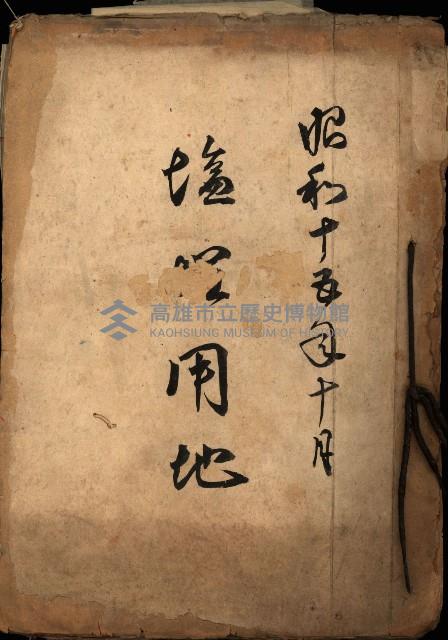 昭和十五年十月
塩埕用地
高雄市立歷史博物館
KAOHSIUNG MUSEUM OF HISTORY